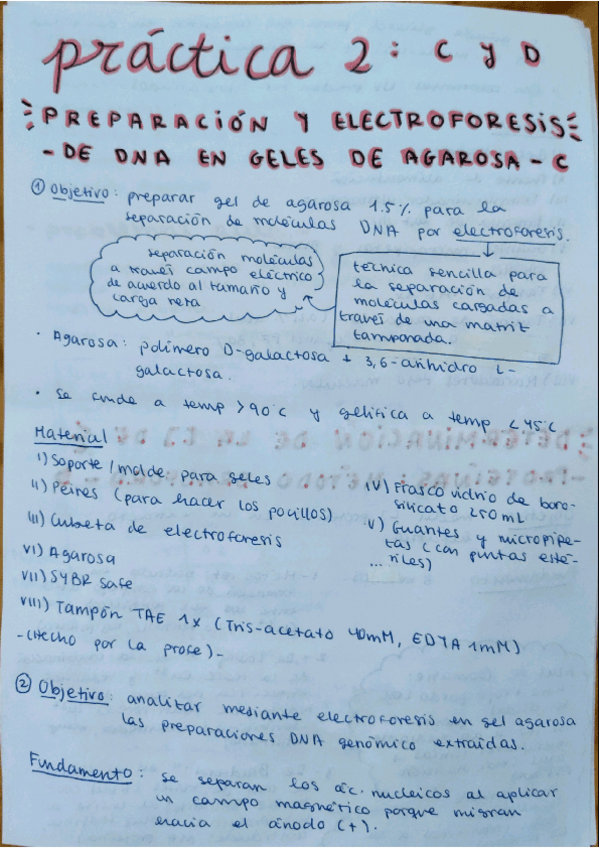 práctica 2: C y D
PREPARACIÓN Y ELECTROFORESIS
- DE DNA EN GELES DE AGAROSA - C
① Objetivo: preparar gel de agarosa 1.5% para la
separación de moléculas DNA por electroforesis.
separación moléculas
a través campo eléctrico
de acuerdo al tamaño y
carga neta
técnica sencilla para
la separación de
moléculas cargadas a
través de una matriz
tamponada.
· Agarosa: polímero D-galactosa + 3,6-anhidro L-
galactosa.
· Se funde a temp > 90°C y gelifica a temp < 45°C
Material
I) Soporte / molde para geles
II) Peines (para hacer los pocillos)
III) Cubeta de electroforesis
IV) Frasco vidrio de boro-
silicato 250 mL
V) Guantes y micropipe-
tas (con puntas esté-
... riles)
VI) Agarosa
VII) SYBR Safe
VIII) Tampón TAE 1x (Tris-acetato 40mM, EDTA 1mM)
-(Hecho por la profe)-
② Objetivo: analizar mediante electroforesis en gel agarosa
las preparaciones DNA genómico extraídas.
Fundamento: se separan los ác. nucleicos al aplicar
un campo magnético porque migran
hacia el ánodo (+).